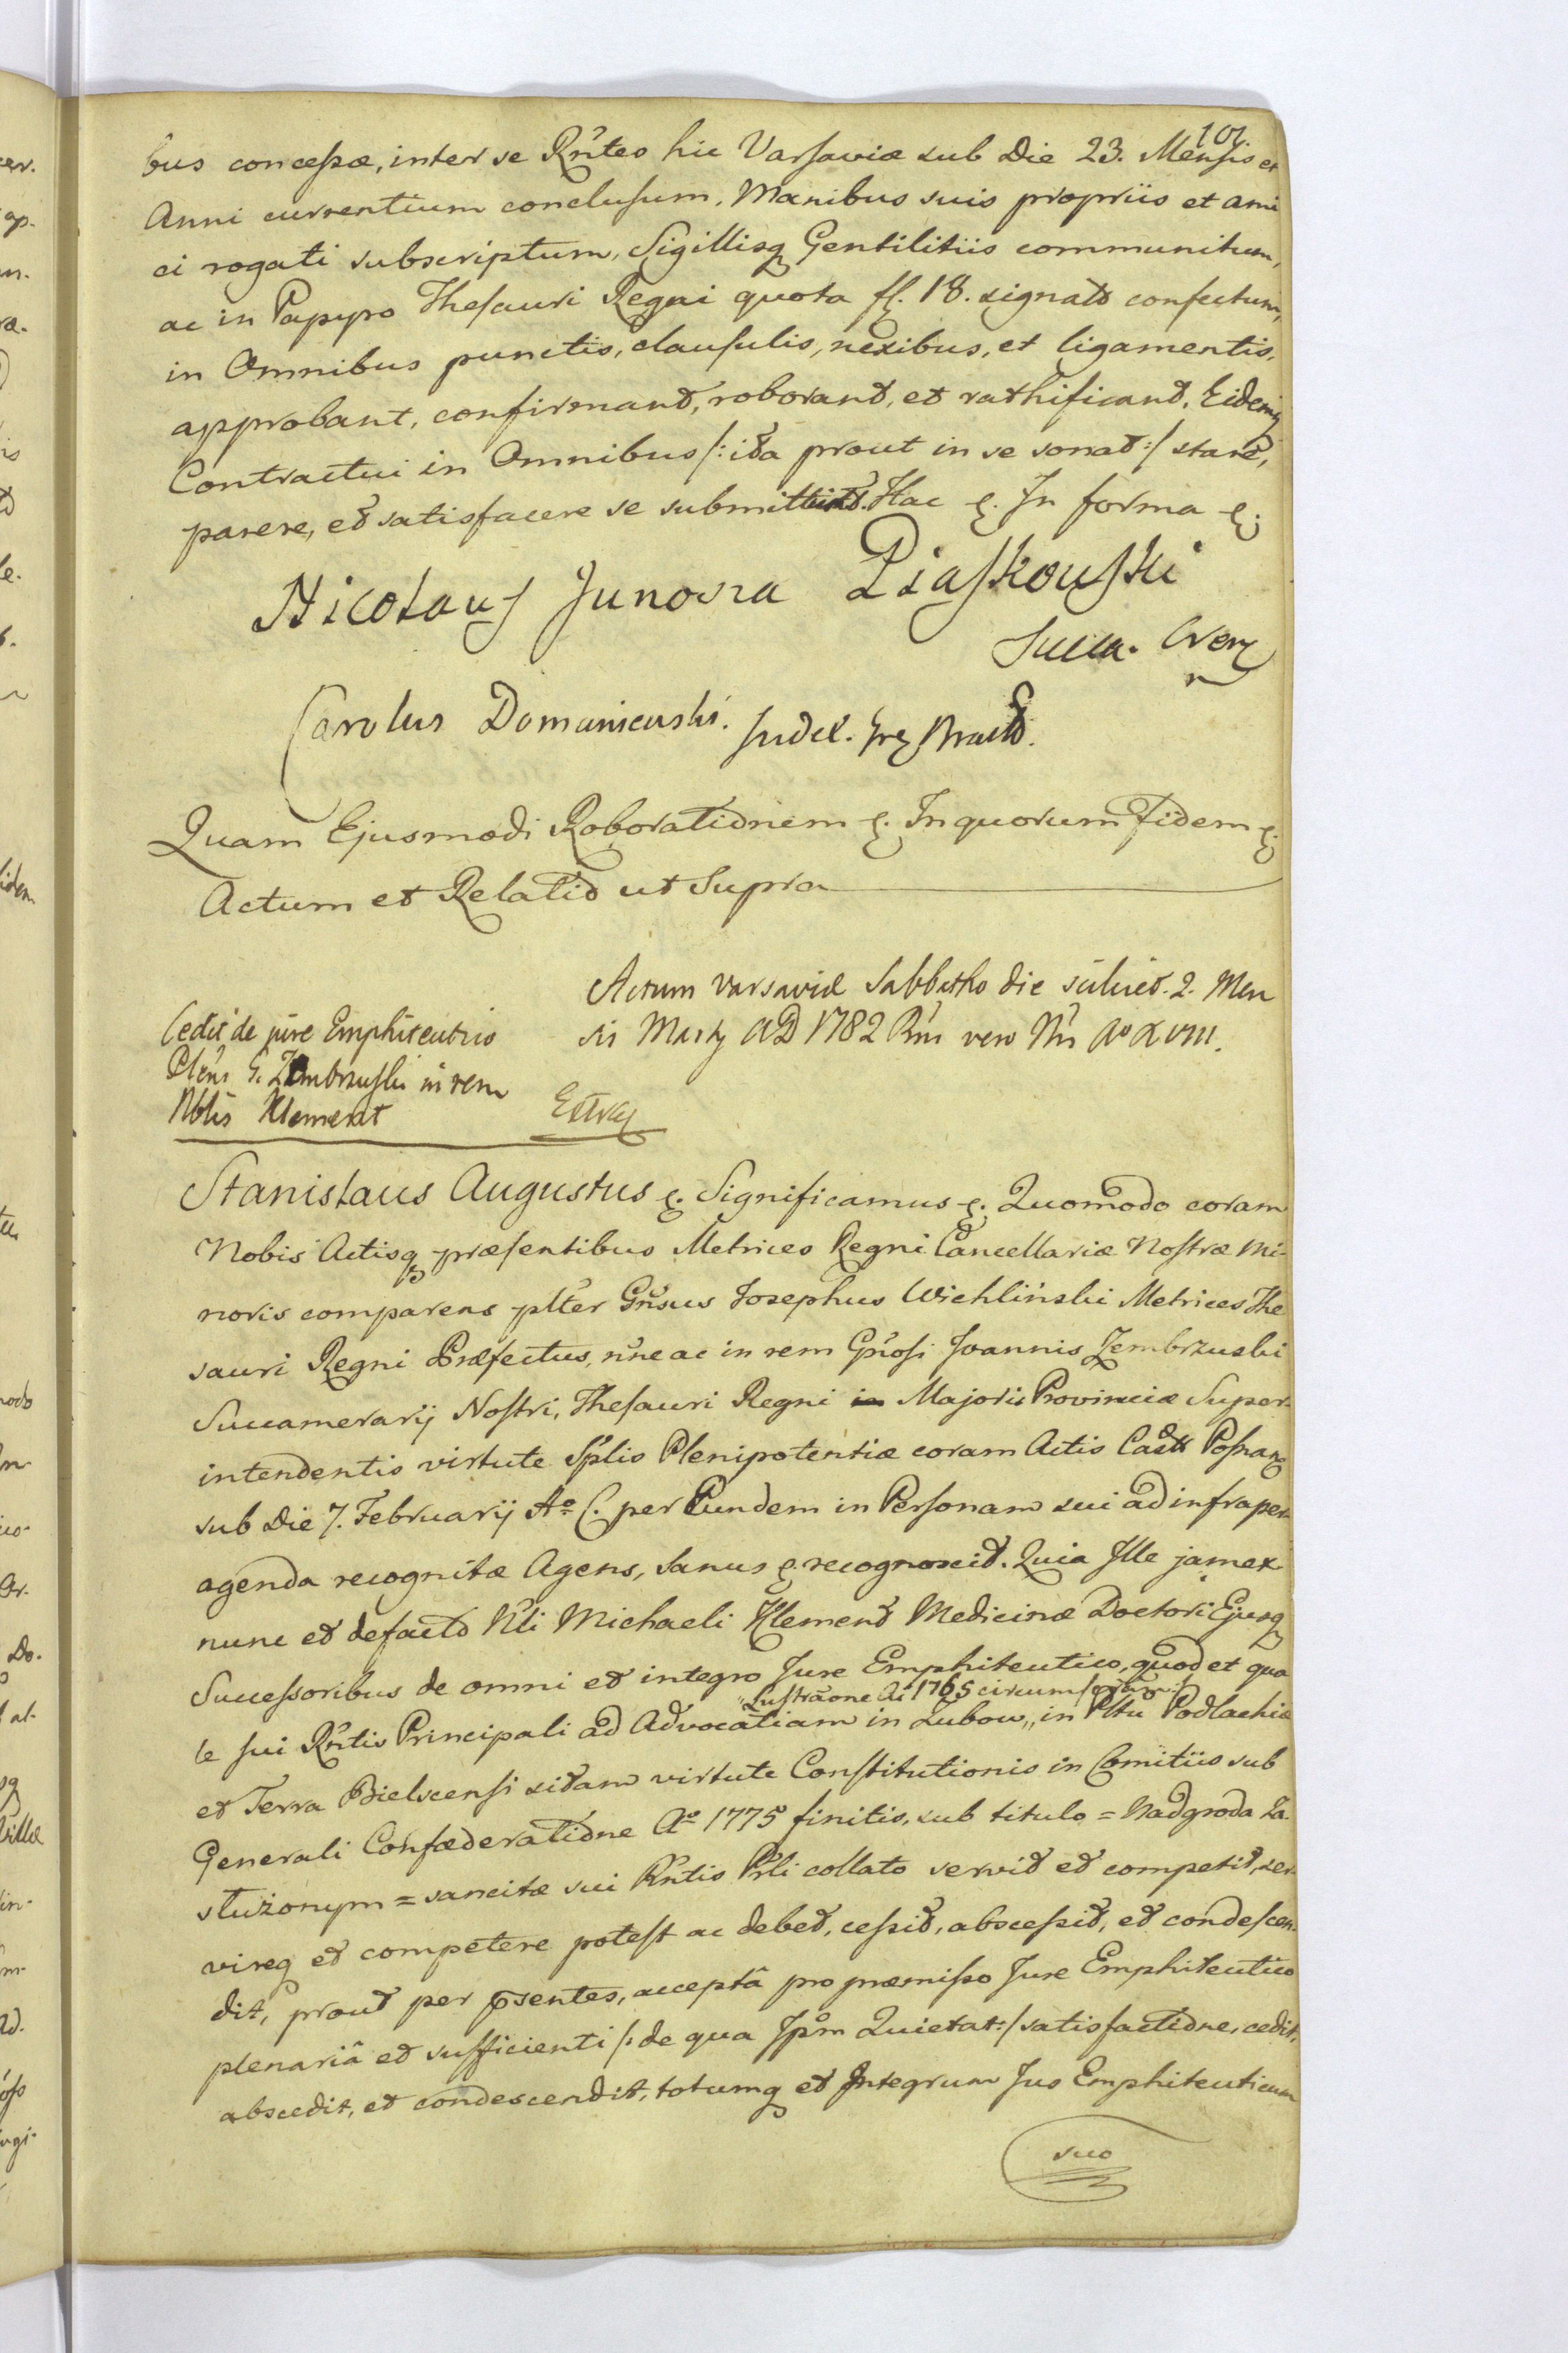 101
bus concessæ, inter se Rñtes hic Varsaviæ sub Die 23. Mensis et
Anni currentium conclusum, Manibus suis propriis et ami
ci rogati subscriptum, Sigillisq Gentilitiis communitum,
ac in Papyro Thesauri Regni quota fl. 18. signato confectum,
in Omnibus punctis, clausulis, nexibus, et ligamentis,
approbant, confirmant, roborant, et rathificant, Eidemq
Contractui in Omnibus /: ita prout in se sonat :/ stare,
parere, et satisfacere se submittunt. Hac &. In forma &.
Nicolaus Junosza Piaskouski
Succa. Crem
Carolus Domaniewski. Judex.
Quam Ejusmodi Roborationem &. In quorum fidem &.
Actum et Relatio ut Supra
Actum Varsaviæ Sabbatho die scilicet. 2. Men
sis Martij AD 1782 Rñi vero Nri Aº XVIII.
Cedit de jure Emphiteutico
Plens G. Zembrzuski in rem
Nblis Klement
Extrad
Stanislaus Augustus &. Significamus &. Quomodo coram
Nobis Actisq præsentibus Metrices Regni Cancellariæ Nostræ Mi-
noris comparens plter Gñsus Josephus Wichliński Metrices The
sauri Regni Præfectus, nne ac in rem Gñosi Joannis Zembrzuski
Succamerarij Nostri, Thesauri Regni in Majoris Provinciæ Super-
intendentis virtute Splis Plenipotentiæ coram Actis Castr Posnan
sub Die 7. Februarij Aº C. per Eundem in Personam sui ad infra per-
agenda recognitæ Agens, Sanus &. recognoscit. Quia Ille jam ex
nunc et de facto Nli Michaeli Klement Medicinæ Doctori Ejusq
Successoribus de omni et integro Jure Emphiteutico, quod et qua
"Lustraone Ai 1765 circumscriptam
le sui Rñtis Principali ad Advocatiam in Lubow,, in Pltu Podlachiæ
et Terra Bielscensi sitam virtute Constitutionis in Comitiis sub
Generali Confæderatione Aº 1775 finitis, sub titulo = Nadgroda Za-
służonym = sancitæ sui Rñtis Prli collato servit et competit, ser-
vireq et competere potest ac debet, cessit, abscessit, et condescen-
dit, prout per psentes, acceptâ pro præmisso Jure Emphiteutico
plenariâ et sufficienti /: de qua Ipsm Quietat :/ satisfactione, cedit,
abscedit, et condescendit, totumq et Integrum Jus Emphiteuticum
suo